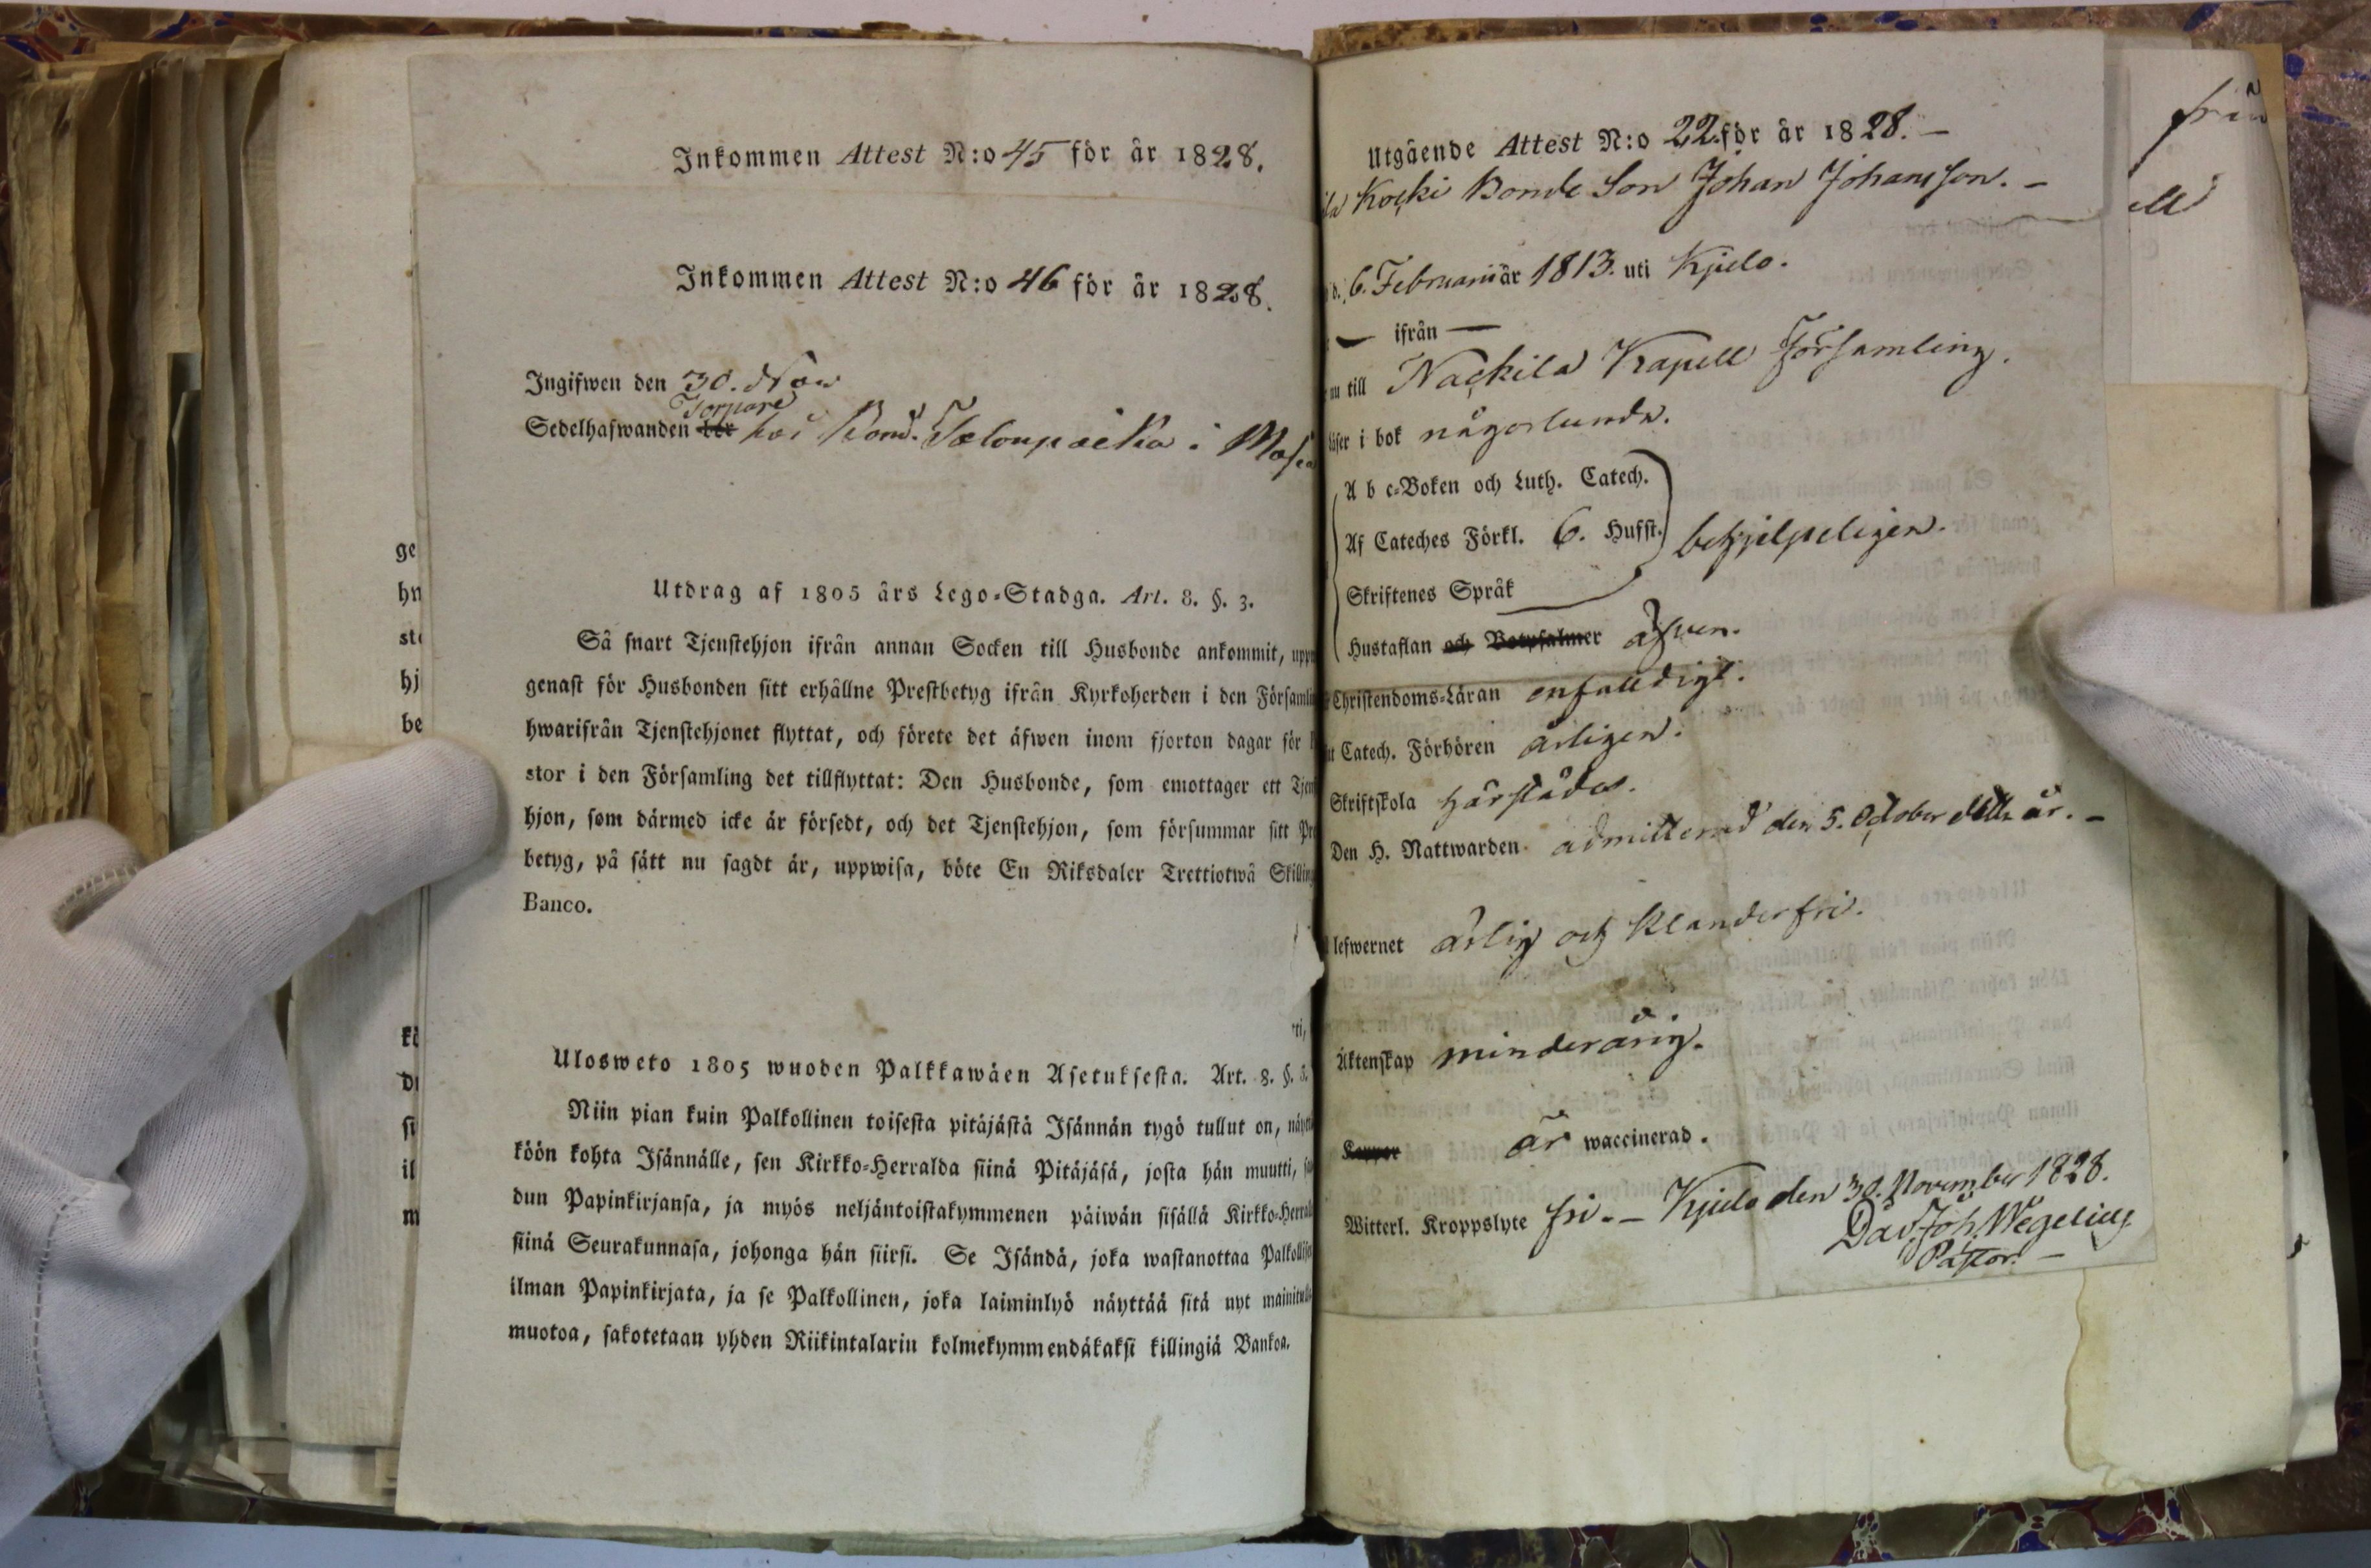 Inkommen Attest N:o 45 för år 1828.
Inkommen Attest N:o 46 för år 1828.
Ingifwen den 30. Nov
Torpare
Sedelhafwanden hos Bond.
ge
hn
hj
be
Utdrag af 1805 års Lego-Stadga. Art. 8. §. 3.
Så snart Tjenstehjon ifrån annan Socken till Husbonde ankommit,
genast för Husbonden sitt erhållne Prestbetyg ifrån Kyrkoherden i den Församlin
hwarifrån Tjenstehjonet flyttat, och förete det äfwen inom fjorton dagar för
stor i den Församling det tillflyttat: Den Husbonde, som emottager ett Tjen
hjon, som därmed icke är försedt, och det Tjenstehjon, som försummar sitt Pre
betyg, på sätt nu sagdt är, uppwisa, böte En Riksdaler Trettiotwå Skilling
Banco.
Ulosweto 1805 wuoden Palkkawäen Asetuksesta. Art. 8. §. 3.
Niin pian kuin Palkollinen toisesta pitäjästä Isännän tygö tullut on,
köön kohta Isännälle, sen Kirkko-Herralda siinä Pitäjäsä, josta hän muutti,
dun Papinkirjansa, ja myös neljäntoistakymmenen päiwän sisällä Kirkko-Herral
siinä Seurakunnasa, johonga hän siirsi. Se Isändä, joka wastanottaa Palkollis
ilman Papinkirjata, ja se Palkollinen, joka laiminlyö näyttää sitä nyt mainitu
muotoa, sakotetaan yhden Riikintalarin kolmekymmendäkaksi killingiä Bankoa.
Utgående Attest N:o 22. för år 1828. –
Koski Bonde Son Johan Johansson. –
6. Februarii år 1813. uti Kjulo.
— ifrån —
nu till Nackila Kapell Församling.
läser i bok någorlunda.
A b c-Boken och Luth. Catech.
Af Cateches Förkl. 6. Hufst. behjelpeligen.
Skriftenes Språk
Hustaflan och Botpsalmer äfwen.
Christendoms-Läran enfalldigt.
Catech. Förhören årligen.
Skriftskola härstädes.
Den H. Nattwarden admitterad den 5. October detta år. –
lefwernet ärlig och klanderfri.
Äktenskap minderårig.
Koppor är waccinerad.
Witterl. Kroppslyte fri. – Kjulo den 30. November 1828.
Dav. Joh. Wegelius
Pastor. –
från